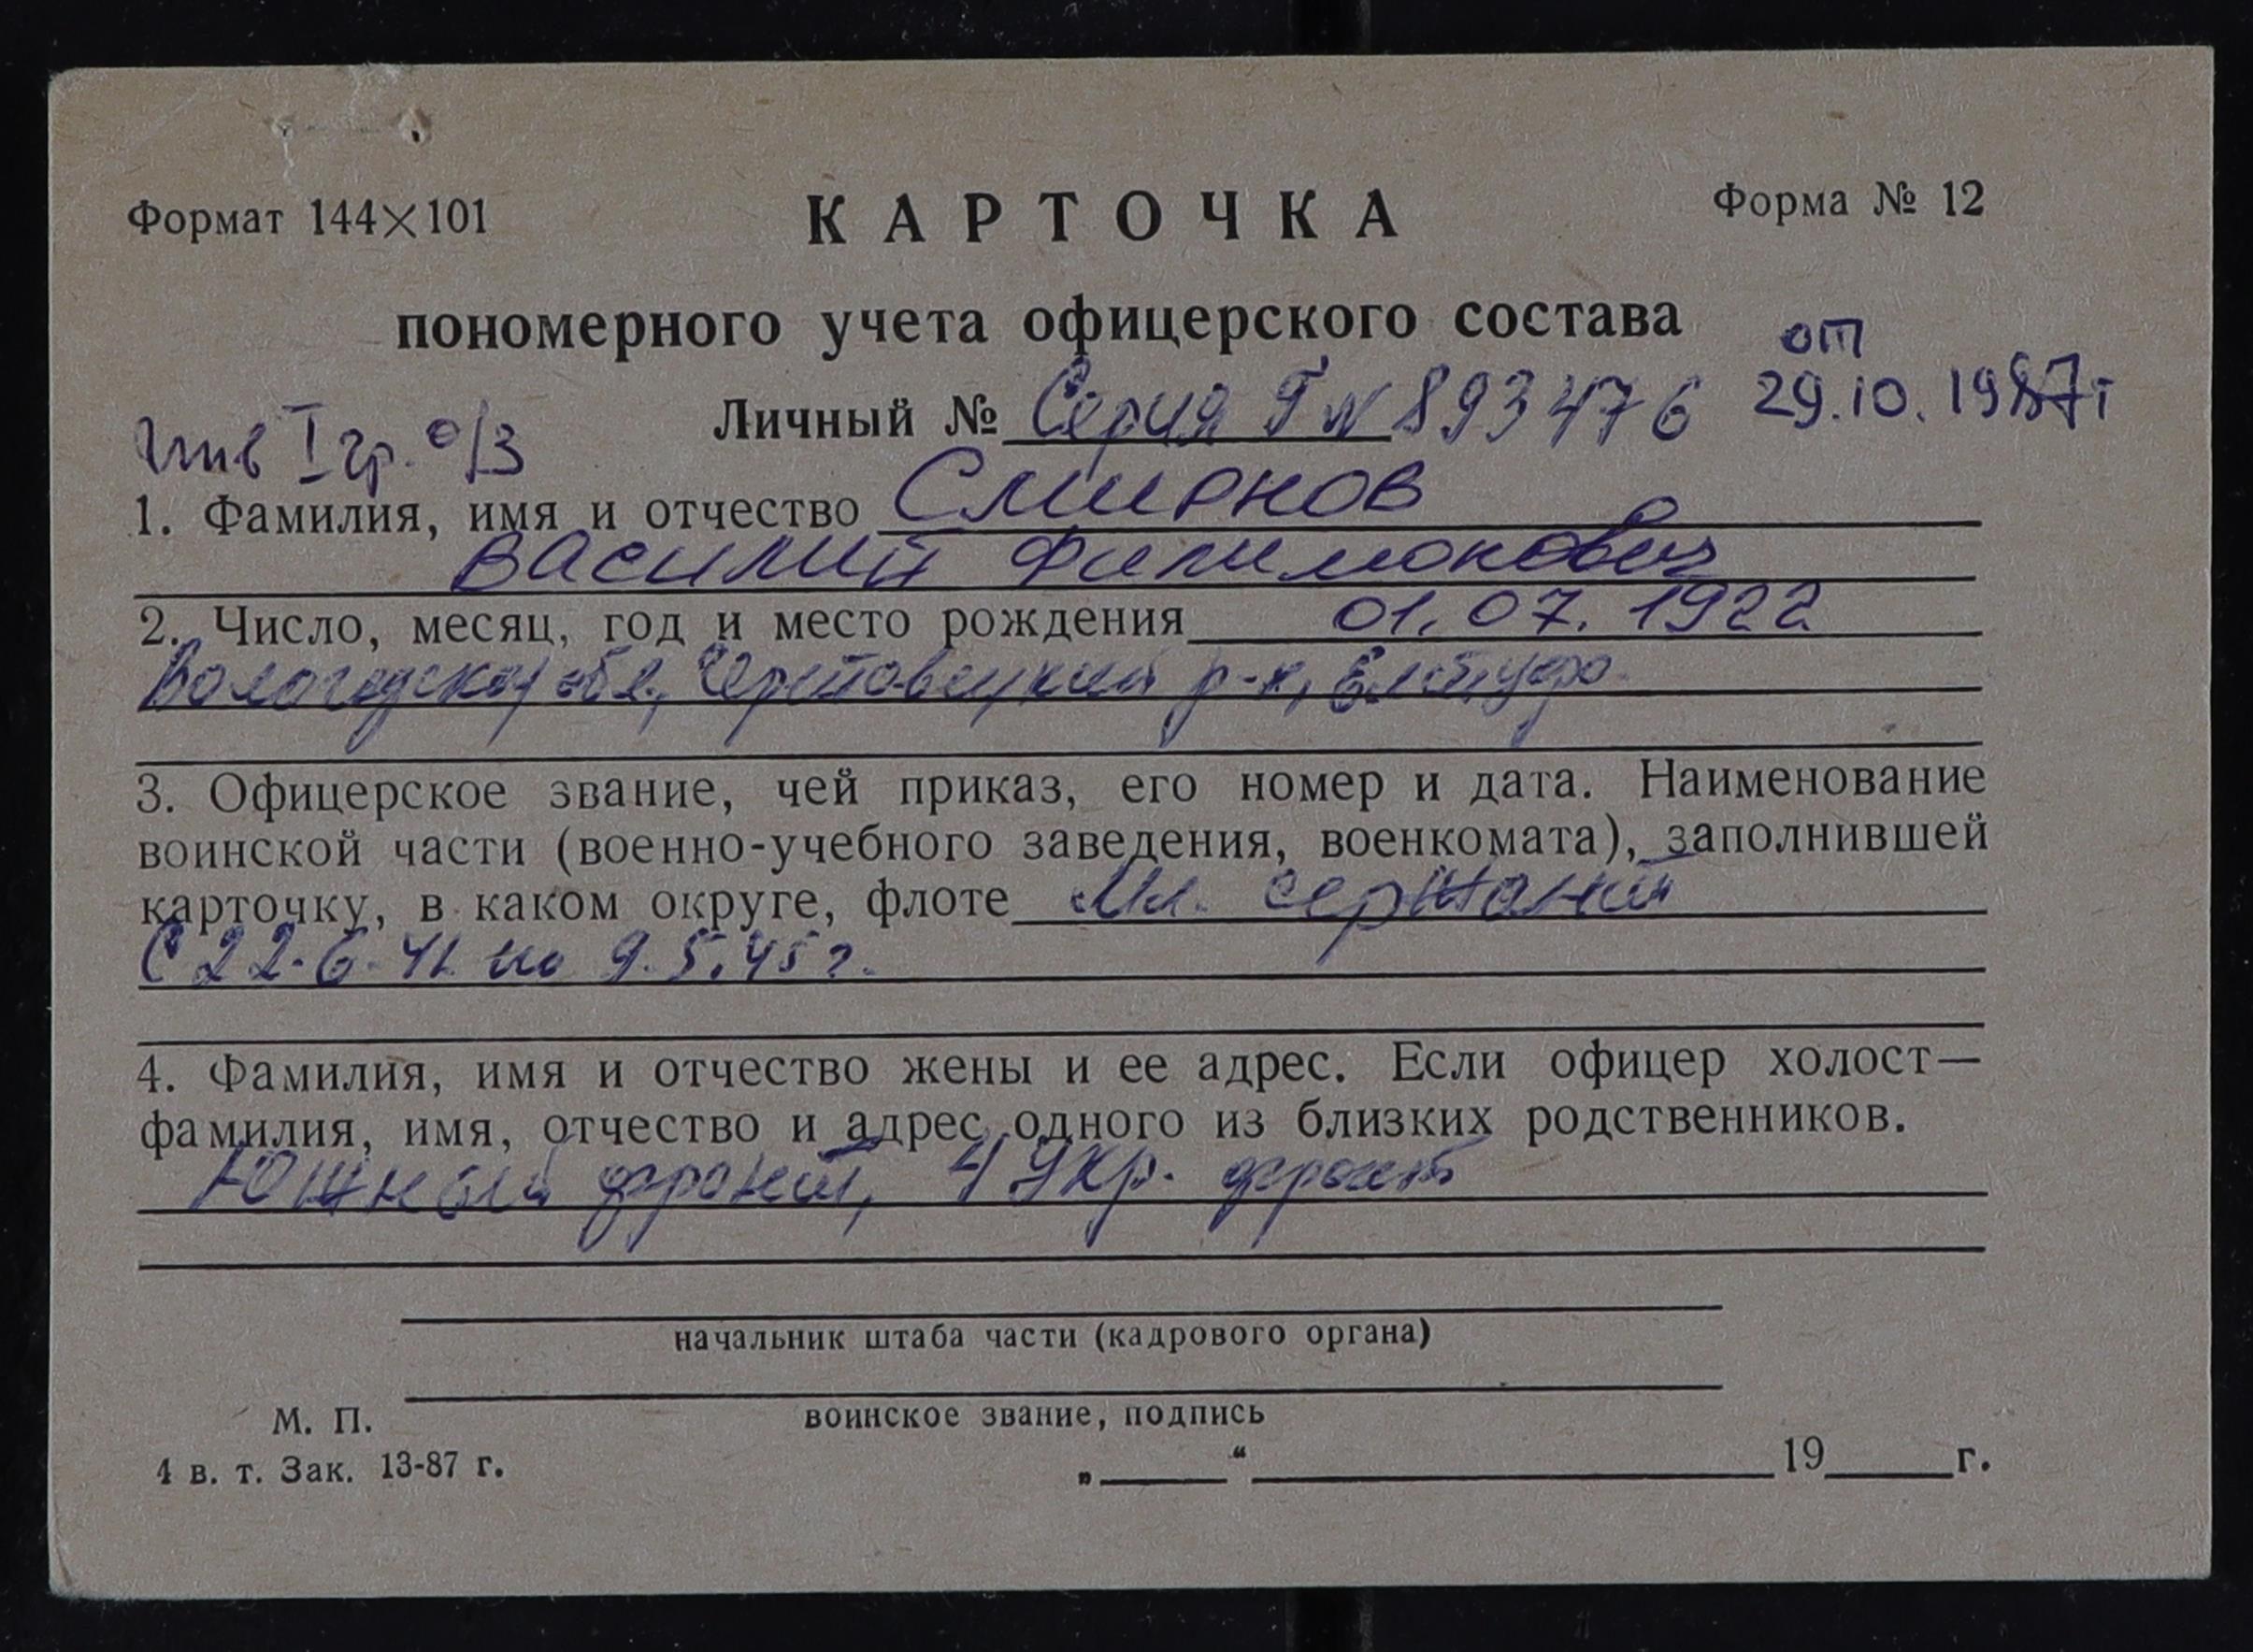 Формат 144×101
КАРТОЧКА
Форма № 12
пономерного учета офицерского состава
от
Личный № Серия Г № 893476 29.10.1987г
Инв I гр. о/з
1. Фамилия, имя и отчество Смирнов
Василий Филимонович
2. Число, месяц, год и место рождения 01.07.1922
Вологодская обл., Череповецкий р-н,
3. Офицерское звание, чей приказ, его номер и дата. Наименование
воинской части (военно-учебного заведения, военкомата), заполнившей
карточку, в каком округе, флоте Мл. сержант
С 22.6.41 по 9.5.45 г.
4. Фамилия, имя и отчество жены и ее адрес. Если офицер холост—
фамилия, имя, отчество и адрес одного из близких родственников.
Южный фронт, 4 Укр. фронт
начальник штаба части (кадрового органа)
воинское звание, подпись
М. П.
4 в. т. Зак. 13-87 г.
„ “ 19 г.